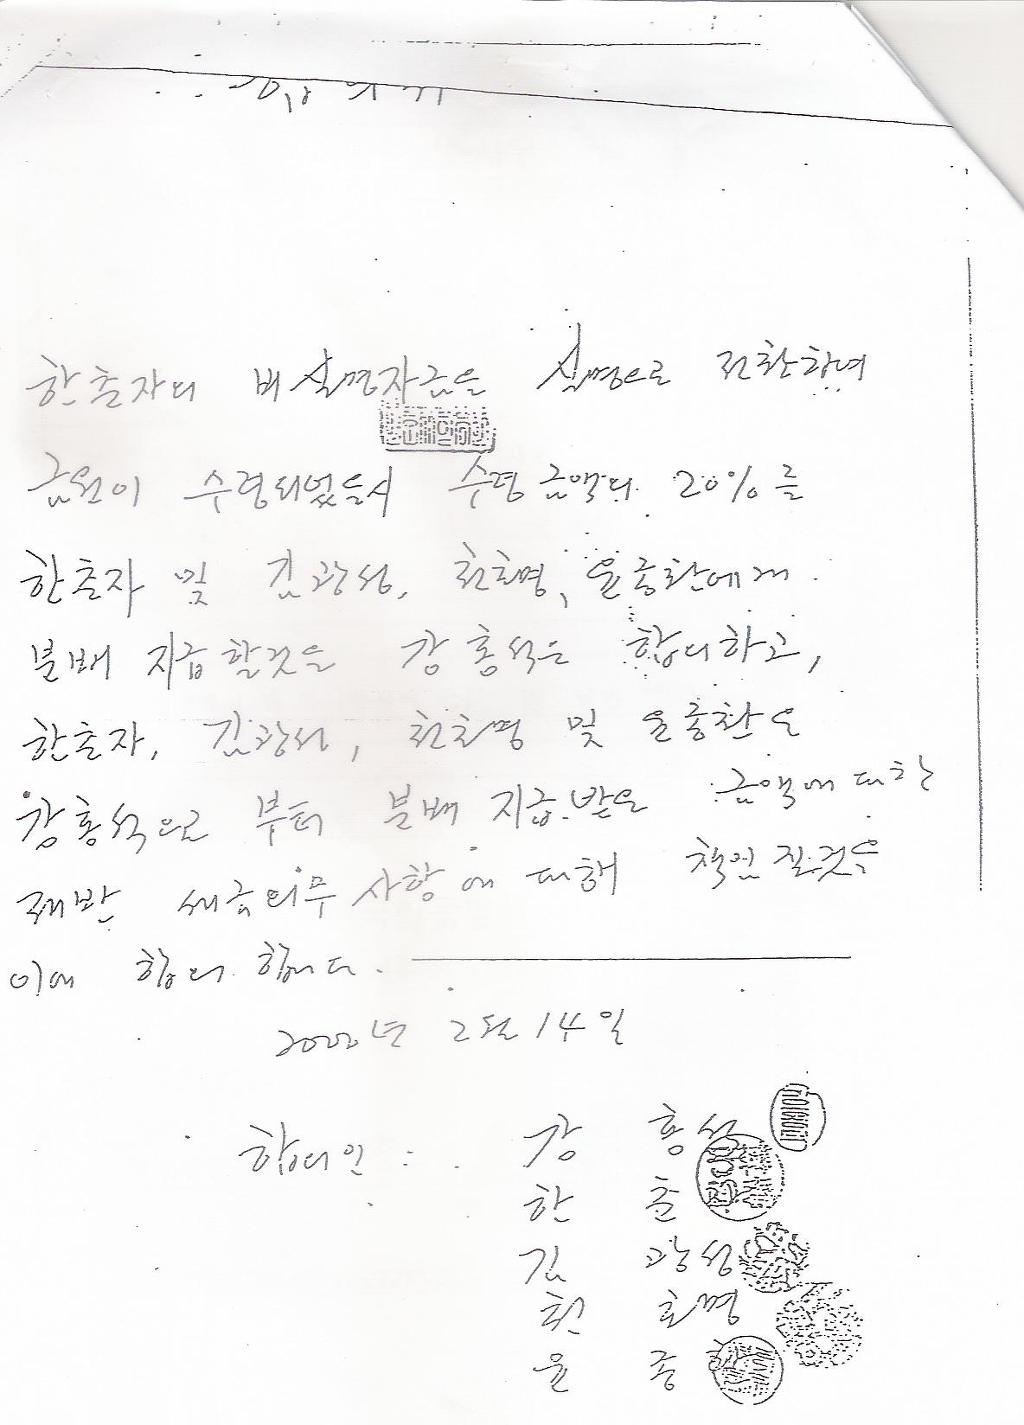 합의서
한춘자의 비실명자금을 실명으로 전환하여
금원이 수령되었을시 수령금액의 20%를
한춘자 및 김광성, 천희명, 윤종환에게
분배 지급할것을 강홍석은 합의하고,
한춘자, 김광성, 천희명 및 윤종환은
강홍석으로 부터 분배 지급받은 금액에 대한
제반 세금의무 사항에 대해 책임질것을
이에 합의 합니다.
2000년 2월 14일
합의인 : 강 홍석
한 춘
김 광성
천 희명
윤 종환